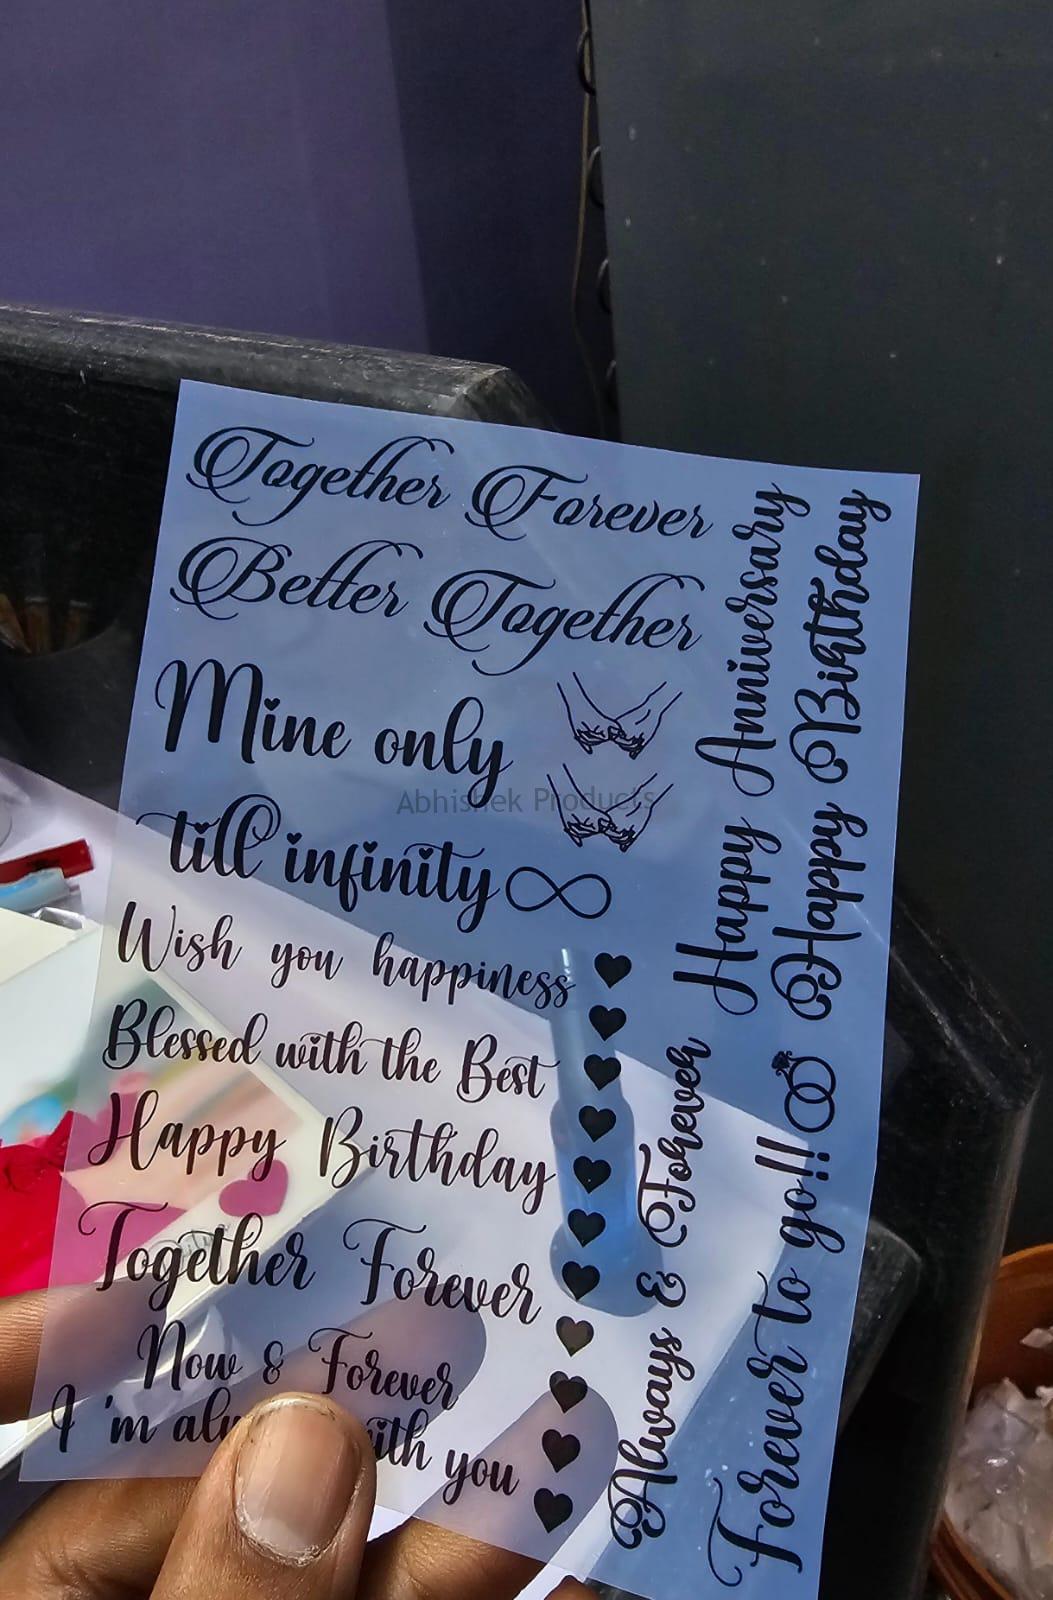 Together Forever
Better Together
Mine only
till infinity
Abhishek Products
Wish you happiness
Blessed with the Best
Happy Birthday
Together Forever
Now & Forever
I 'm with you
Always & Forever
Happy Anniversary
Happy Birthday
Forever to go!!